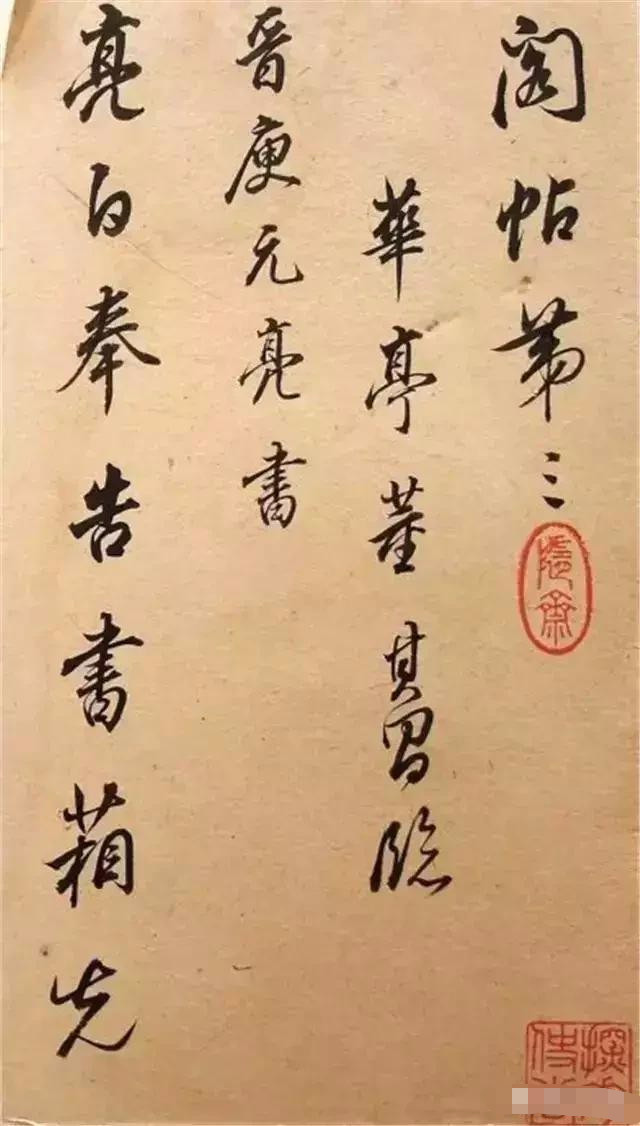 閣帖第三
隱齋
華亭董其昌臨
晉庾元亮書
亮白奉告書箱先